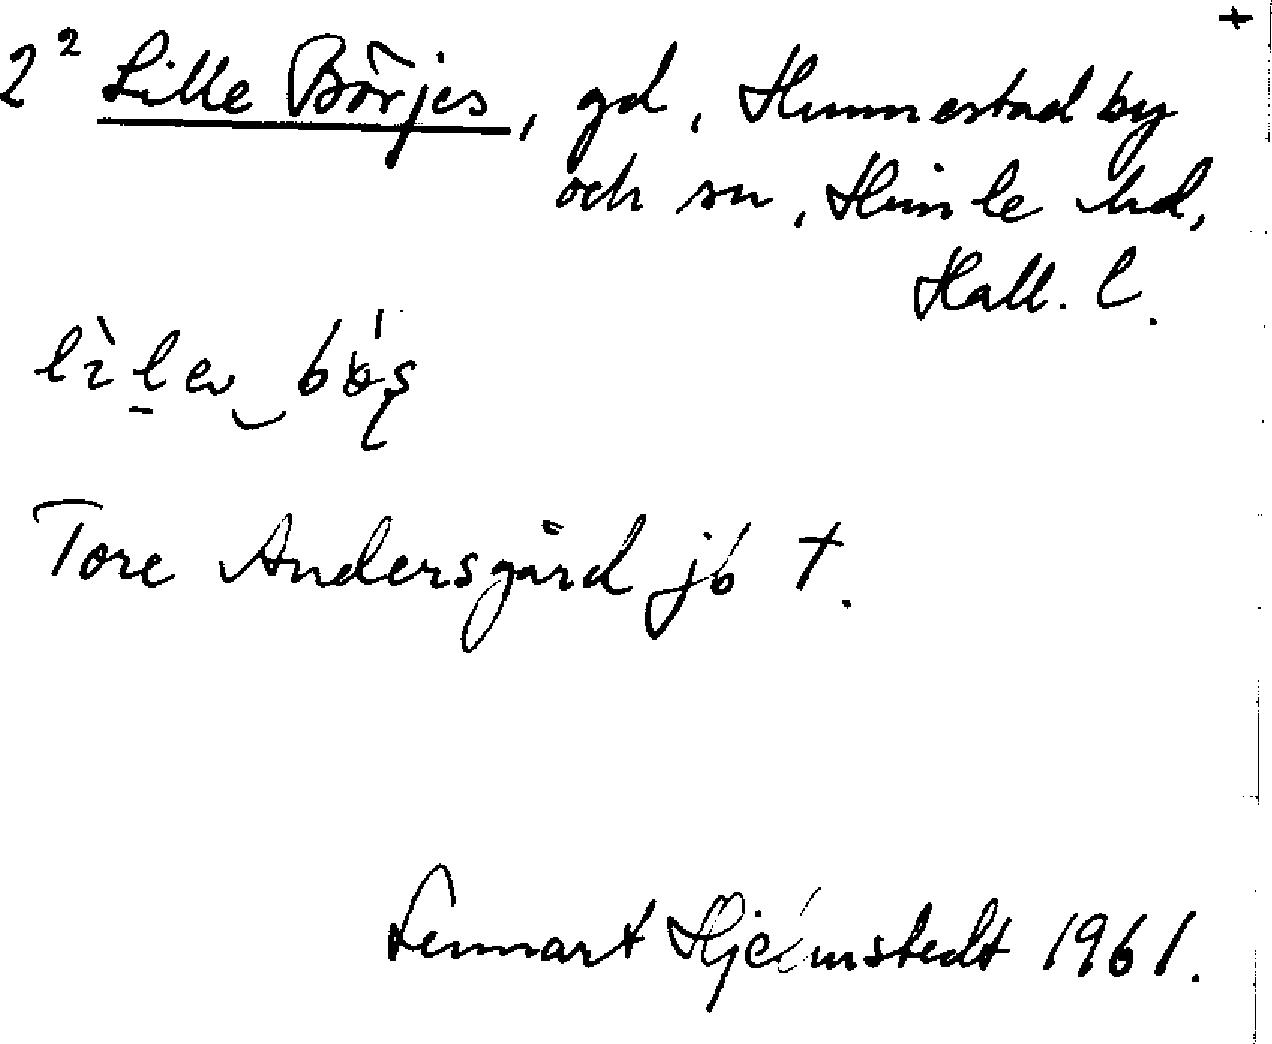 +
2² Lille Börjes, gd, Hunnestad by
och sn, Himle hd,
Hall. l.
Tore Andersgård jb †.
Lennart Hjelmstedt 1961.